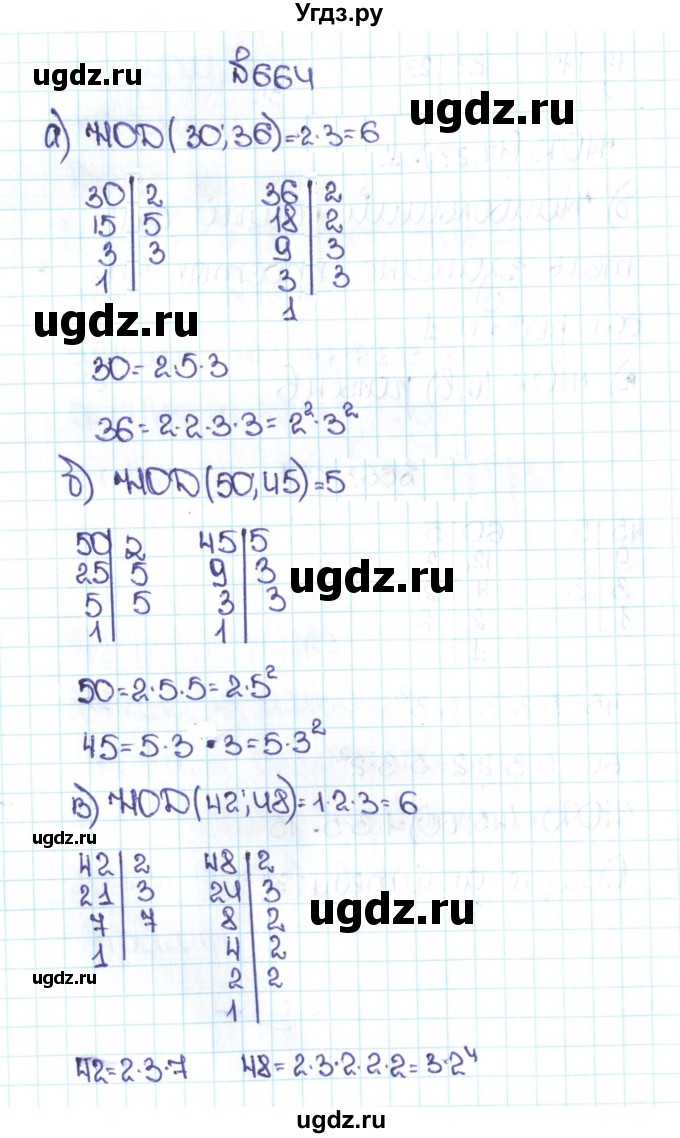 Угдз.ру
ugdz.ru
№664
ugdz.ru
а) НОД(30; 36)=2·3=6
30|2 36|2
15|5 18|2
3|3 9|3
1| 3|3
1
ugdz.ru
30=2·5·3
36=2·2·3·3=2²·3²
б) НОД(50; 45)=5
50|2 45|5
25|5 9|3
5|5 3|3
1| 1|
ugdz.ru
50=2·5·5=2·5²
45=5·3·3=5·3²
в) НОД(42; 48)=1·2·3=6
ugdz.ru
42|2 48|2
21|3 24|3
7|7 8|2
1| 4|2
2|2
1|
ugdz.ru
ugdz.ru
42=2·3·7 48=2·3·2·2·2=3·2⁴
ugdz.ru